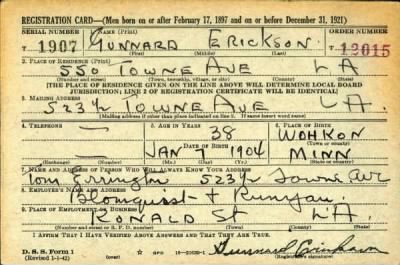 REGISTRATION CARD—(Men born on or after February 17, 1897 and on or before December 31, 1921)
SERIAL NUMBER 1. NAME (Print) ORDER NUMBER
T 1907 GUNNARD ERICKSON T 12015
(First) (Middle) (Last)
2. PLACE OF RESIDENCE (Print)
550 TOWNE AVE LA
(Number and street) (Town, township, village, or city) (County) (State)
[THE PLACE OF RESIDENCE GIVEN ON THE LINE ABOVE WILL DETERMINE LOCAL BOARD
JURISDICTION; LINE 2 OF REGISTRATION CERTIFICATE WILL BE IDENTICAL]
3. MAILING ADDRESS
523½ TOWNE AVE LA.
[Mailing address if other than place indicated on line 2. If same insert word same]
4. TELEPHONE 5. AGE IN YEARS 6. PLACE OF BIRTH
— 38 WOHKON
DATE OF BIRTH (Town or county)
— JAN 7 1904 MINN
(Exchange) (Number) (Mo.) (Day) (Yr.) (State or country)
7. NAME AND ADDRESS OF PERSON WHO WILL ALWAYS KNOW YOUR ADDRESS
Tom Errington 523½ Towne Ave
8. EMPLOYER'S NAME AND ADDRESS
Blomquist + Runyan
9. PLACE OF EMPLOYMENT OR BUSINESS
RONALD St LA.
(Number and street or R. F. D. number) (Town) (County) (State)
I AFFIRM THAT I HAVE VERIFIED ABOVE ANSWERS AND THAT THEY ARE TRUE.
D. S. S. Form 1
(Revised 1-1-42) GPO Gunnard
(Registrant's signature)